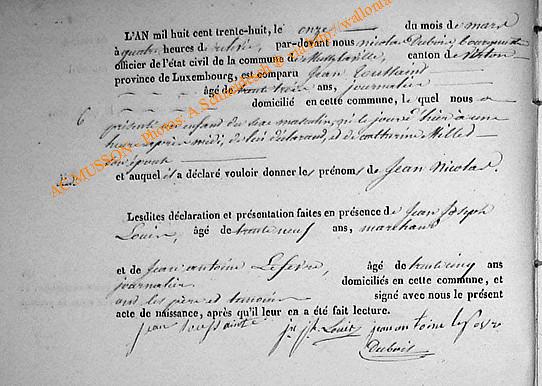 L'AN mil huit cent trente-huit, le onze du mois de mars
à quatre heures de relevée, par-devant nous nicolas Dubois, bourgmestre
officier de l'état civil de la commune de canton de
province de Luxembourg, est comparu Jean toussaint
âgé de trente trois ans, journalier
domicilié en cette commune, le quel nous a
6 présenté un enfant du sexe masculin, né le jour d'hier à une
heure après midi, de lui déclarant, et de catherine Millet
son épouse
et auquel il a déclaré vouloir donner les prénoms de Jean Nicolas.
Lesdites déclaration et présentation faites en présence de Jean Joseph
Louis, âgé de trente neuf ans, marchand
et de Jean antoine Lefevre, âgé de trente cinq ans
journalier domiciliés en cette commune, et
ont les père et témoins signé avec nous le présent
acte de naissance, après qu'il leur en a été fait lecture.
jean toussainte j. jph. Louis jean antoine lefevre
Dubois
AC MUSSON - Photos: A